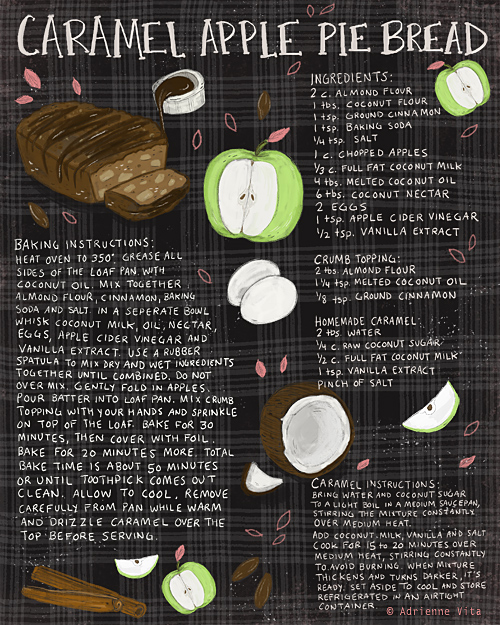 CARAMEL APPLE PIE BREAD
INGREDIENTS:
2 C. ALMOND FLOUR
1 tbs. COCONUT FLOUR
1 tsp. GROUND CINNAMON
1 tsp. BAKING SODA
1/4 tsp. SALT
1 C. CHOPPED APPLES
1/3 C. FULL FAT COCONUT MILK
4 tbs. MELTED COCONUT OIL
6 tbs. COCONUT NECTAR
2 EGGS
1 tsp. APPLE CIDER VINEGAR
1/2 tsp. VANILLA EXTRACT
CRUMB TOPPING:
2 tbs. ALMOND FLOUR
1 1/4 tsp. MELTED COCONUT OIL
1/8 tsp. GROUND CINNAMON
HOMEMADE CARAMEL:
2 tbs. WATER
1/4 C. RAW COCONUT SUGAR
1/2 C. FULL FAT COCONUT MILK
1 tsp. VANILLA EXTRACT
PINCH OF SALT
BAKING INSTRUCTIONS:
HEAT OVEN TO 350° GREASE ALL
SIDES OF THE LOAF PAN WITH
COCONUT OIL. MIX TOGETHER
ALMOND FLOUR, CINNAMON, BAKING
SODA AND SALT. IN A SEPERATE BOWL
WHISK COCONUT MILK, OIL, NECTAR,
EGGS, APPLE CIDER VINEGAR AND
VANILLA EXTRACT. USE A RUBBER
SPATULA TO MIX DRY AND WET INGREDIENTS
TOGETHER UNTIL COMBINED. DO NOT
OVER MIX. GENTLY FOLD IN APPLES.
POUR BATTER INTO LOAF PAN. MIX CRUMB
TOPPING WITH YOUR HANDS AND SPRINKLE
ON TOP OF THE LOAF. BAKE FOR 30
MINUTES, THEN COVER WITH FOIL.
BAKE FOR 20 MINUTES MORE. TOTAL
BAKE TIME IS ABOUT 50 MINUTES
OR UNTIL TOOTHPICK COMES OUT
CLEAN. ALLOW TO COOL, REMOVE
CAREFULLY FROM PAN WHILE WARM
AND DRIZZLE CARAMEL OVER THE
TOP BEFORE SERVING.
CARAMEL INSTRUCTIONS:
BRING WATER AND COCONUT SUGAR
TO A LIGHT BOIL IN A MEDIUM SAUCEPAN,
STIRRING THE MIXTURE CONSTANTLY
OVER MEDIUM HEAT.
ADD COCONUT MILK, VANILLA AND SALT
COOK FOR 15 to 20 MINUTES OVER
MEDIUM HEAT, STIRRING CONSTANTLY
TO AVOID BURNING. WHEN MIXTURE
THICKENS AND TURNS DARKER, IT'S
READY. SET ASIDE TO COOL AND STORE
REFRIGERATED IN AN AIRTIGHT
CONTAINER
© Adrienne Vita